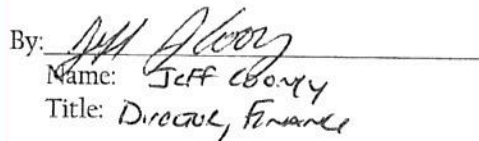 By: Jeff Cooney
Name: Jeff Cooney
Title: Director, Finance